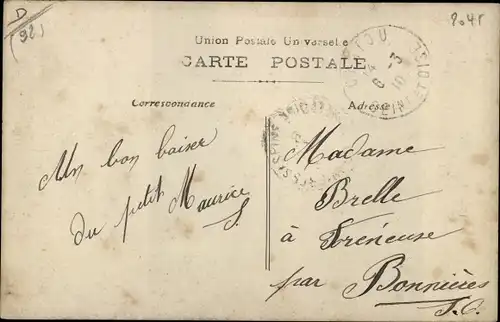 D
(92)
2045
Union Postale Universelle
CARTE POSTALE
Correspondance
Adresse
Un bon baiser
du petit Maurice
S.
Madame
Brelle
à Fréneuse
par Bonnières
S.O.
CHATOU
SEINE ET OISE
6 - 3
10